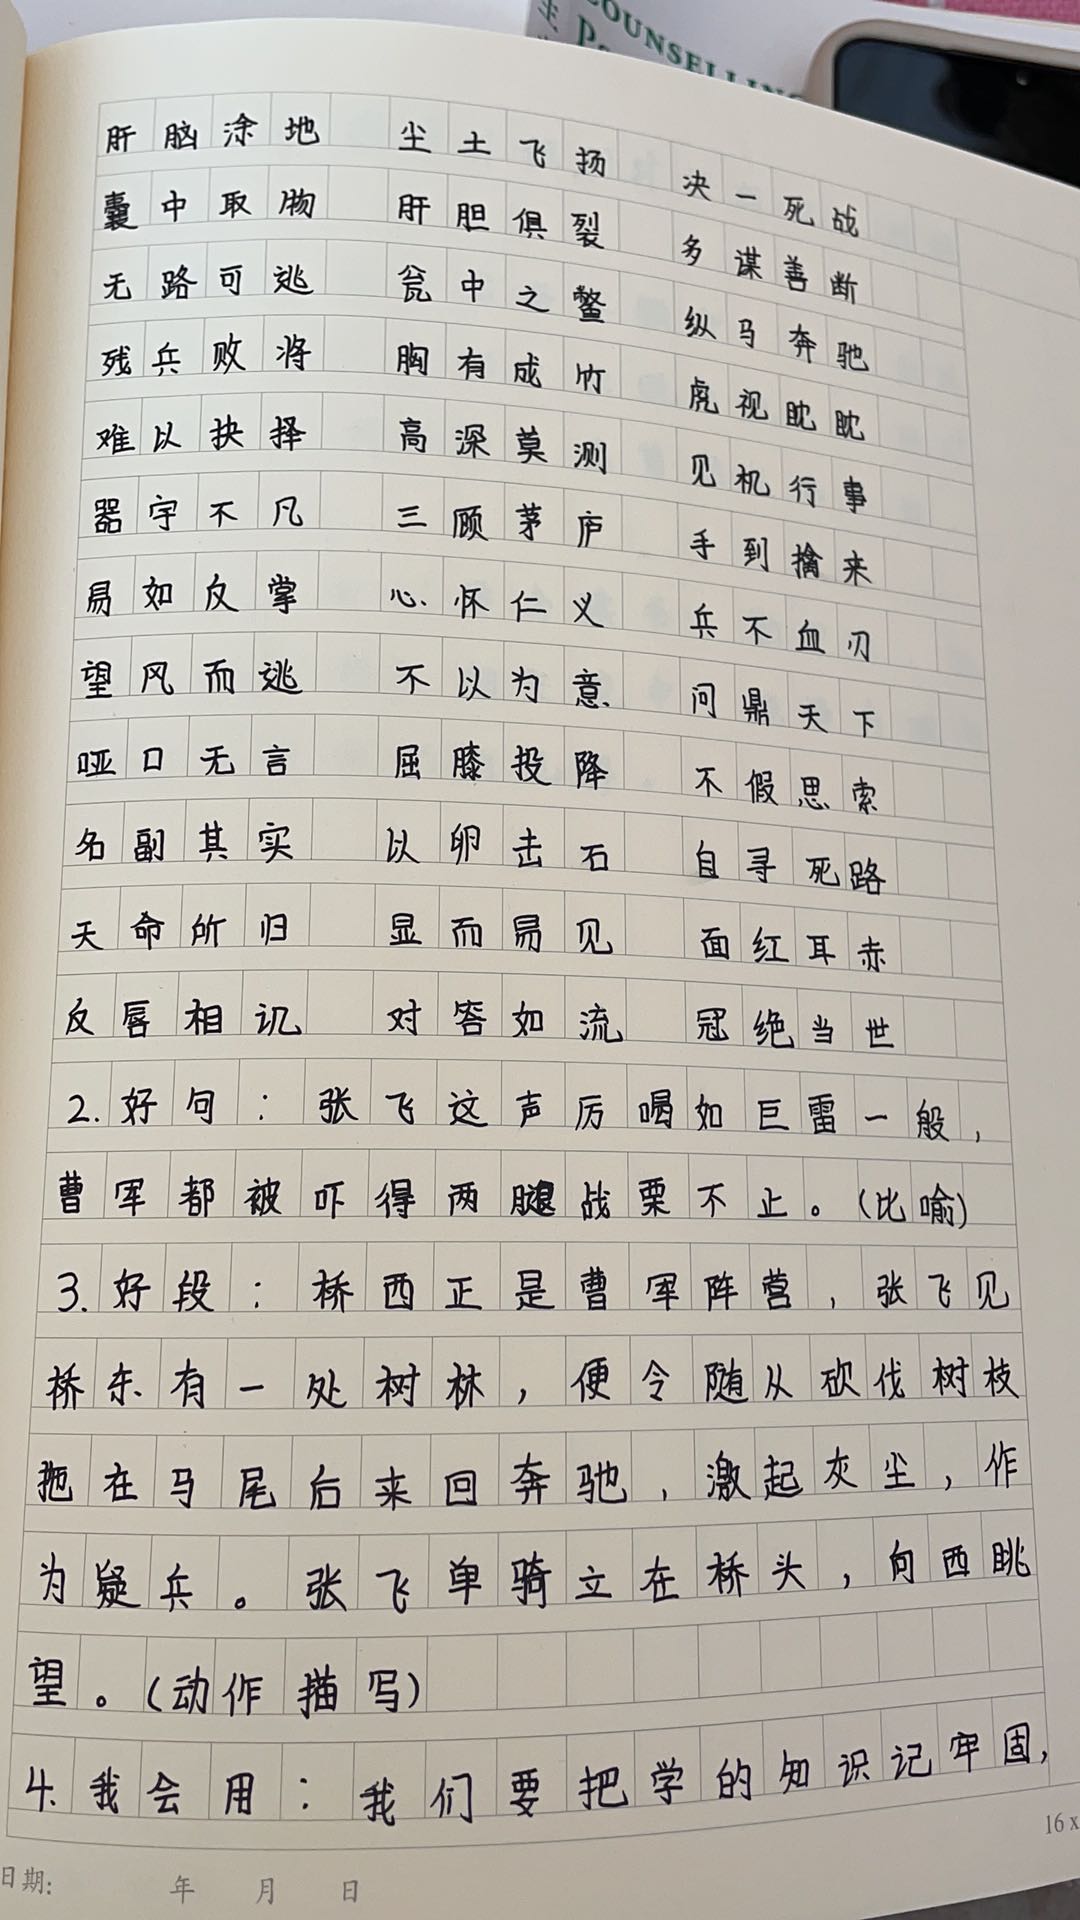 COUNSELLING
肝脑涂地 尘土飞扬 决一死战
囊中取物 肝胆俱裂 多谋善断
无路可逃 瓮中之鳖 纵马奔驰
残兵败将 胸有成竹 虎视眈眈
难以抉择 高深莫测 见机行事
器宇不凡 三顾茅庐 手到擒来
易如反掌 心怀仁义 兵不血刃
望风而逃 不以为意 问鼎天下
哑口无言 屈膝投降 不假思索
名副其实 以卵击石 自寻死路
天命所归 显而易见 面红耳赤
反唇相讥 对答如流 冠绝当世
2.好句：张飞这声厉喝如巨雷一般，
曹军都被吓得两腿战栗不止。(比喻)
3.好段：桥西正是曹军阵营，张飞见
桥东有一处树林，便令随从砍伐树枝
拖在马尾后来回奔驰，激起灰尘，作
为疑兵。张飞单骑立在桥头，向西眺
望。(动作描写)
4.我会用：我们要把学的知识记牢固，
16 x
日期: 年 月 日